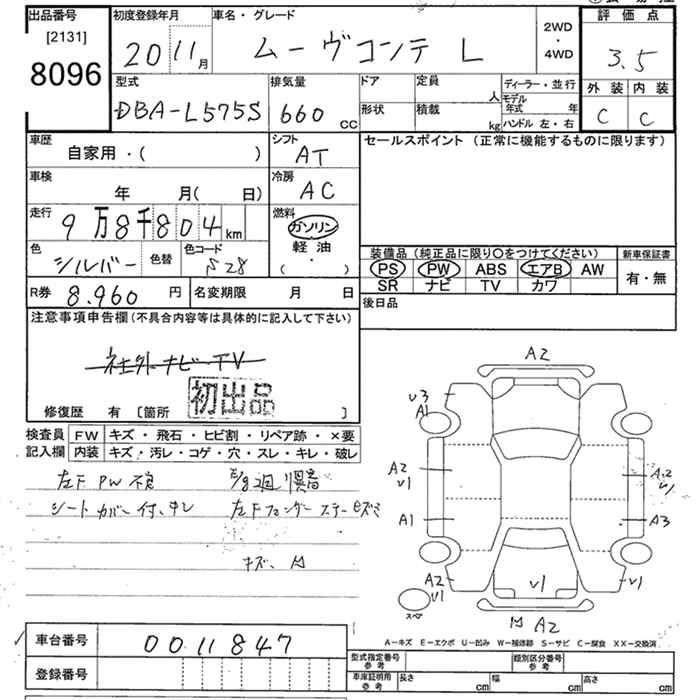 出品番号
[2131]
8096
初度登録年月
20 11月
車名・グレード
ムーヴコンテ L
2WD
・
4WD
評価点
3.5
外装 内装
C C
型式
DBA-L575S
排気量
660 cc
ドア
形状
定員
人
積載
kg
ディーラー・並行
モデル年式 年
ハンドル 左・右
車歴
自家用・( )
シフト
AT
セールスポイント (正常に機能するものに限ります)
車検
年 月( 日)
冷房
AC
走行
9万8千804km
燃料
ガソリン
軽油
( ・ )
色
シルバー
色替
色コード
S28
装備品(純正品に限り○をつけてください)
PS PW ABS エアB AW
SR ナビ TV カワ
新車保証書
有・無
R券 8.960円
名変期限 月 日
後日品
注意事項申告欄(不具合内容等は具体的に記入して下さい)
社外ナビ・TV
初出品
修復歴 有 [箇所 ]
検査員
記入欄
FW キズ・飛石・ヒビ割・リペア跡・×要
内装 キズ・汚レ・コゲ・穴・スレ・キレ・破レ
左F PW 不良
シートカバー付、キレ
左Fフェンダーステー
キズ、凹
A2
U3
A1
A2
U1
A1
A2
U1
A2
U1
A3
U1
U1
凹 A2
スペア
A-キズ E-エクボ U-凹み W-補修跡 S-サビ C-腐食 XX-交換済
車台番号
0011847
登録番号
型式指定番号
参考
類別区分番号
参考
車庫証明用
参考
長さ cm
幅 cm
高さ cm